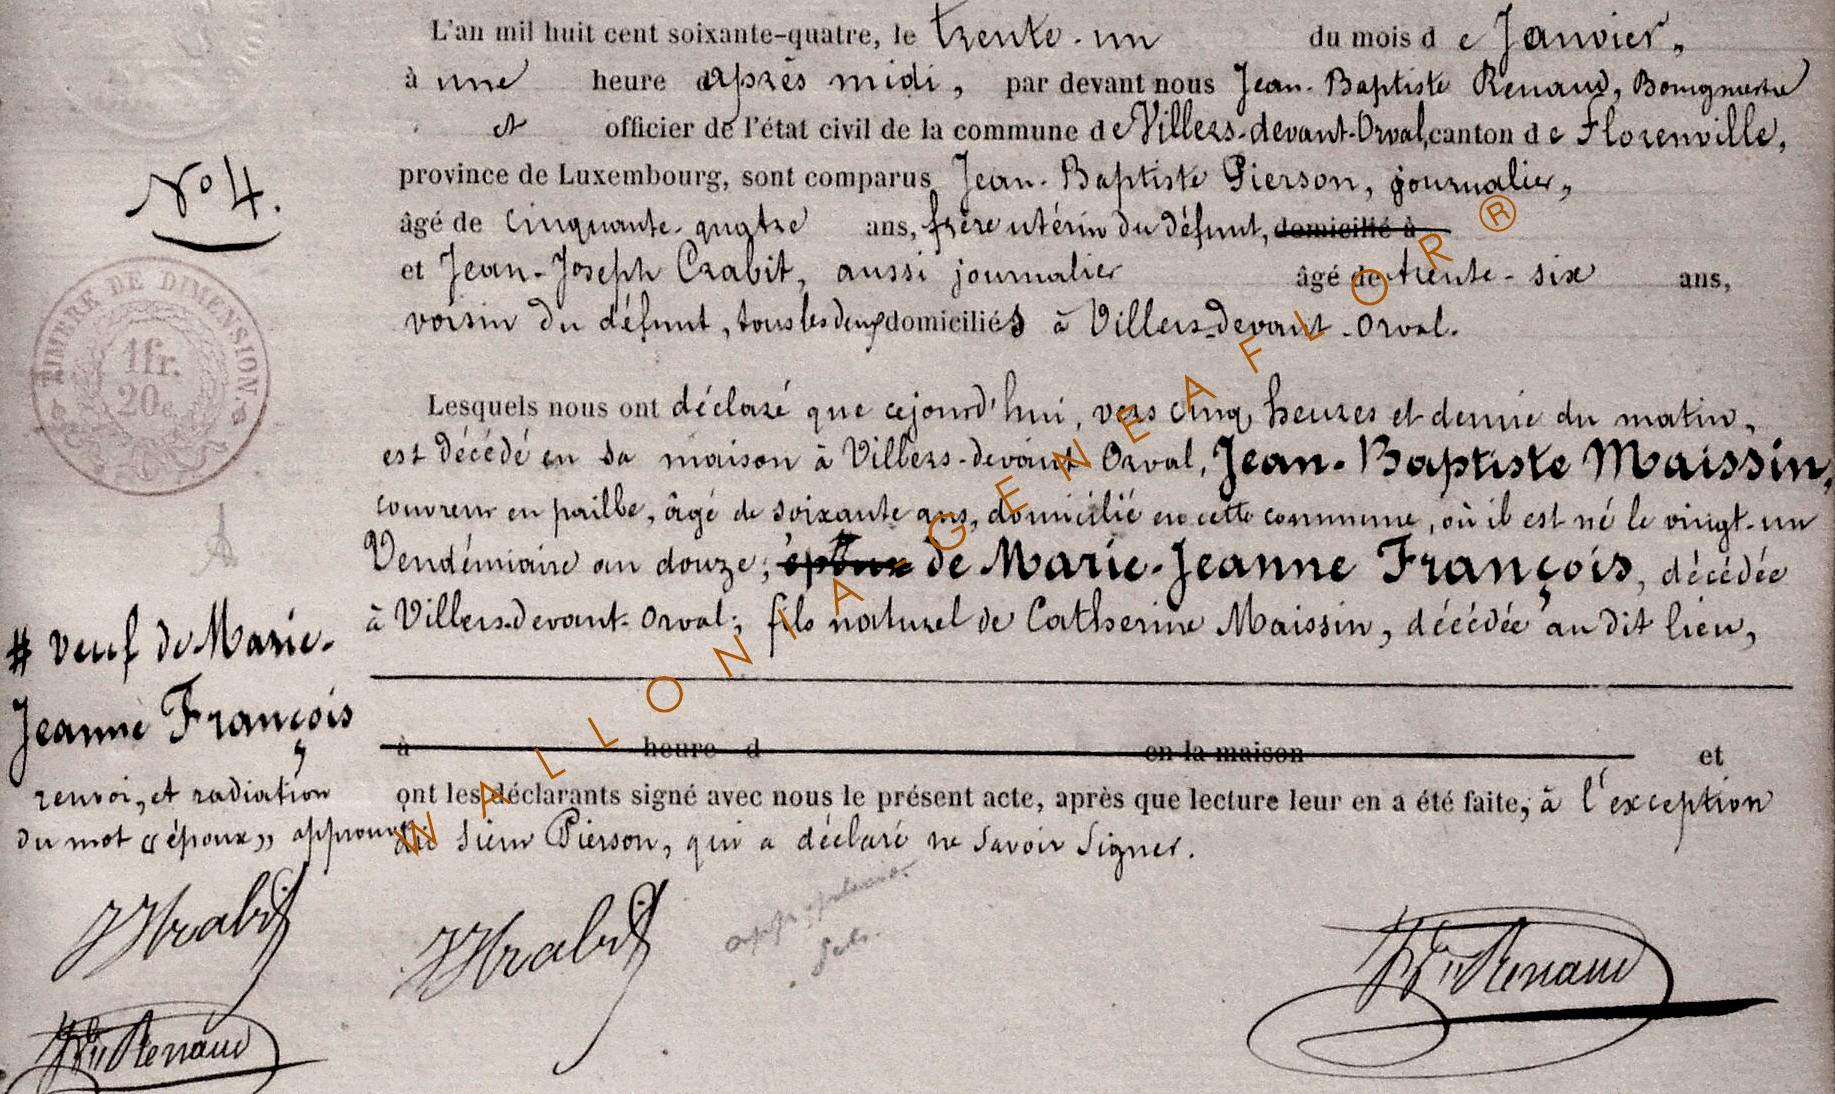 L'an mil huit cent soixante-quatre, le trente-un du mois de Janvier,
à une heure après midi, par devant nous Jean-Baptiste Renaud, Bourgmestre
et officier de l'état civil de la commune de Villers-devant-Orval, canton de Florenville,
N° 4.
province de Luxembourg, sont comparus Jean-Baptiste Pierson, journalier,
âgé de cinquante-quatre ans, frère utérin du défunt, domicilié à
et Jean-Joseph Crabit, aussi journalier âgé de trente-six ans,
voisin du défunt, tous les deux domiciliés à Villers-devant-Orval.
TIMBRE DE DIMENSION.
1fr.
20c.
Lesquels nous ont déclaré que cejourd'hui, vers cinq heures et demie du matin,
est décédé en sa maison à Villers-devant Orval, Jean-Baptiste Maissin,
couvreur en paille, âgé de soixante ans, domicilié en cette commune, où il est né le vingt-un
Vendémiaire an douze; époux de Marie-Jeanne François, décédée
à Villers-devant-Orval; fils naturel de Catherine Maissin, décédée au dit lieu,
# veuf de Marie-
Jeanne François
renvoi, et radiation
du mot « époux » approuvés.
à heure d en la maison et
ont les déclarants signé avec nous le présent acte, après que lecture leur en a été faite, à l'exception
du sieur Pierson, qui a déclaré ne savoir signer.
JJCrabit
JJCrabit
JBte Renaud
JBte Renaud
WALLONIA-GENEAFLOR ®